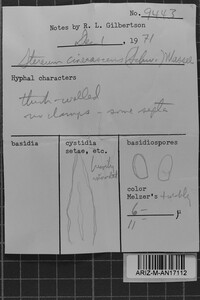 No. 9443
Notes by R. L. Gilbertson
Dec 1, 1971
Stereum cinerascens (Schw.) Massee
Hyphal characters
thick-walled
no clamps - some septa
basidia
cystidia
setae, etc.
basidiospores
color
Melzer's
6-
11- µ
ARIZ-M-AN17112